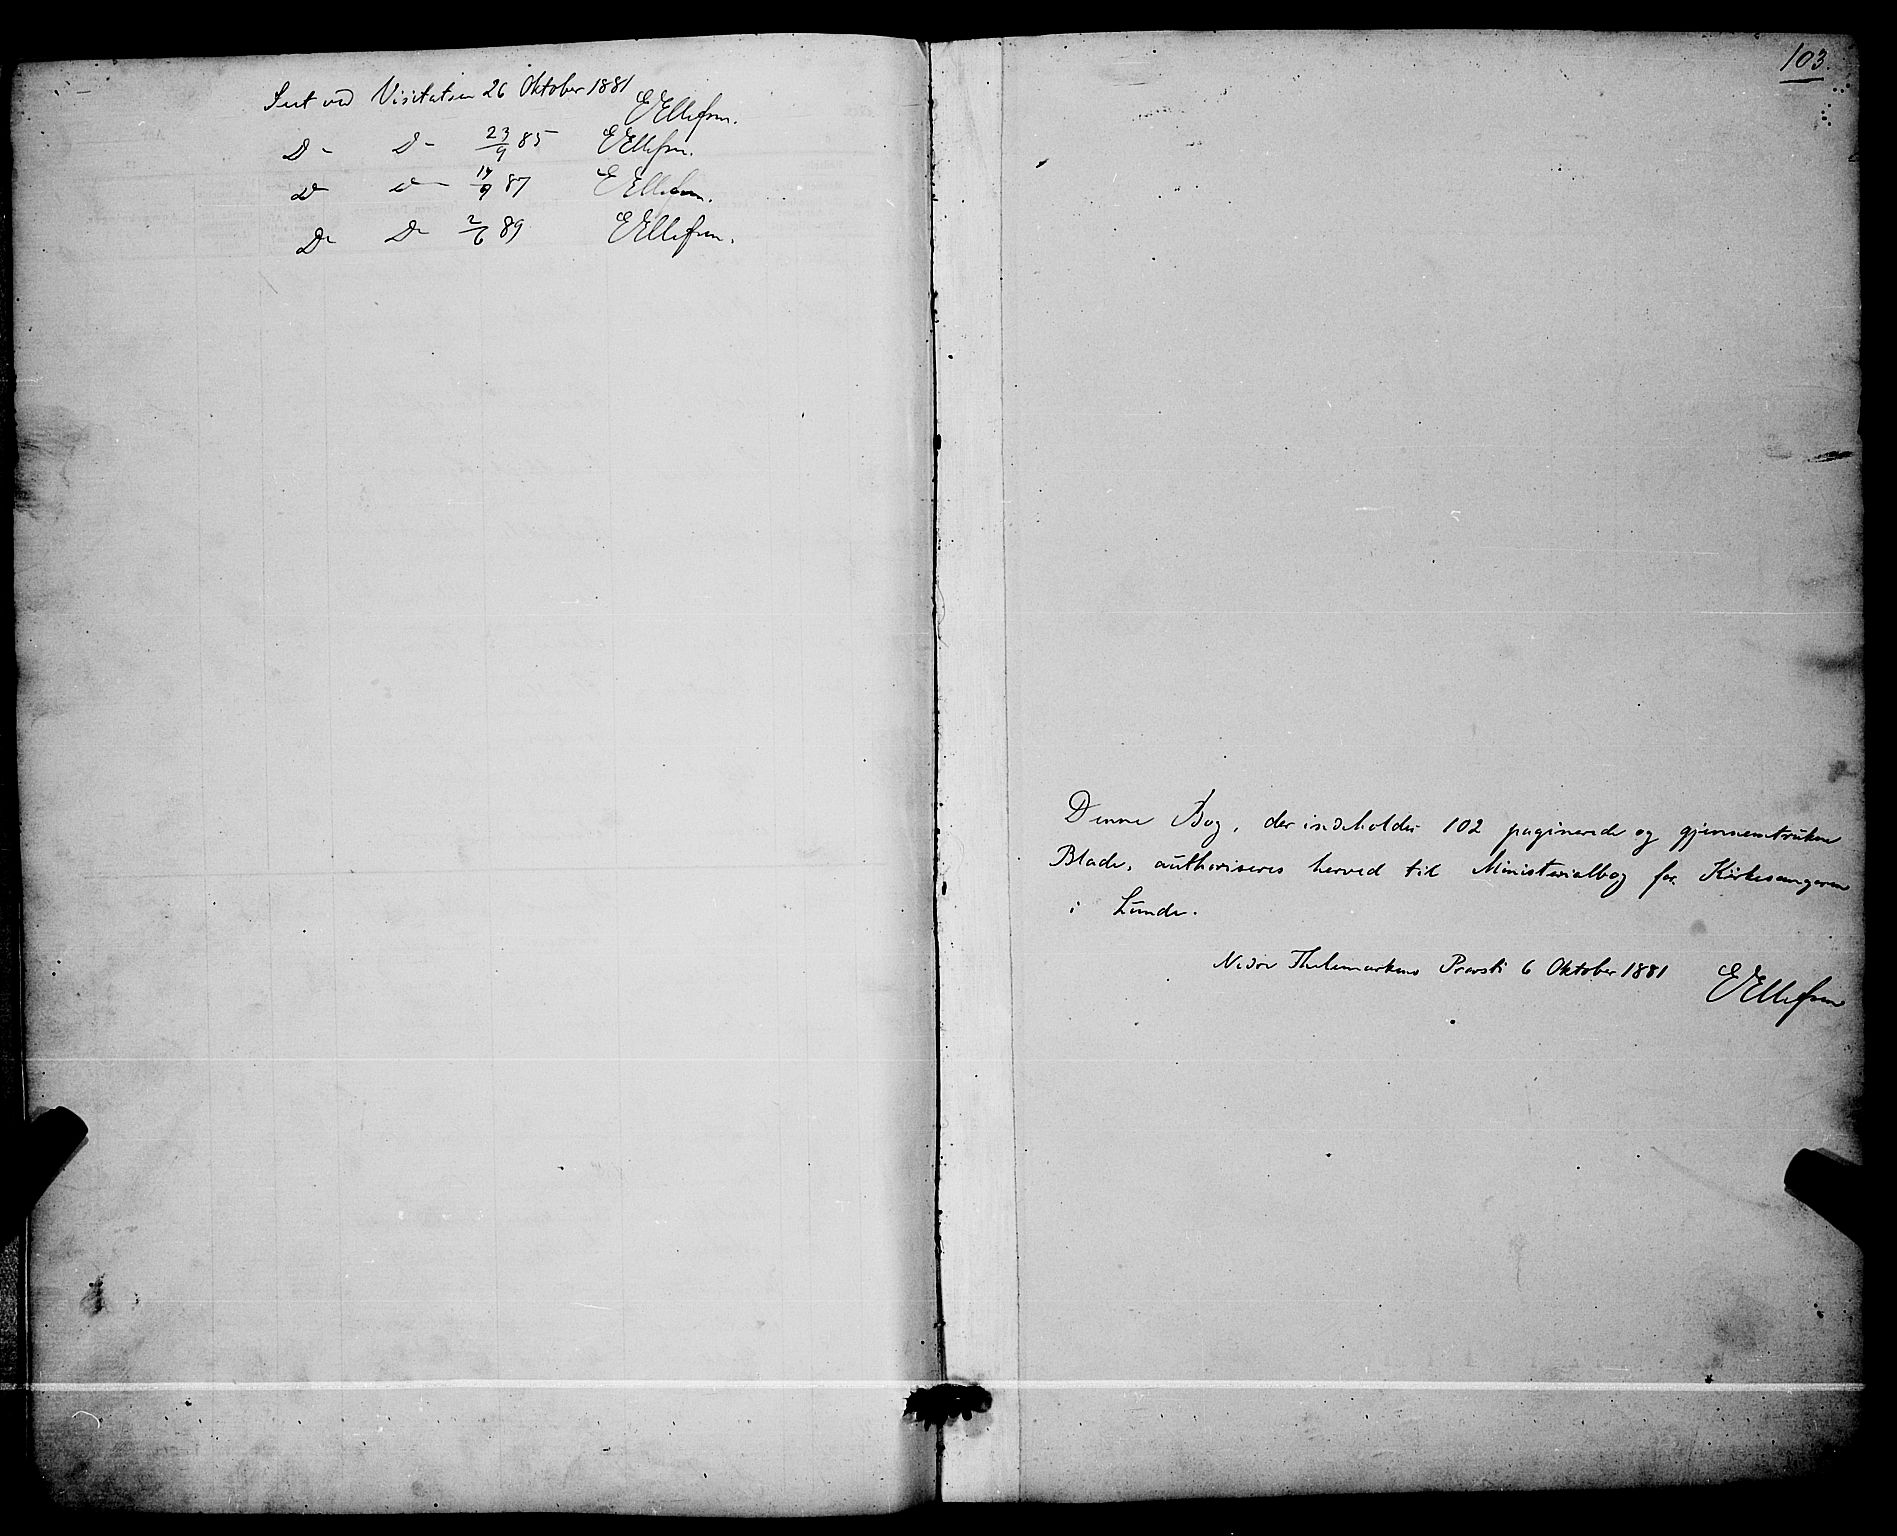 Seet ved Visitatsen 26 Oktober 1881
EEllefsen.
Do Do 23/9 85 EEllefsen.
Do Do 17/9 87 EEllefsen.
Do Do 2/6 89 EEllefsen.
103.
Denne Bog, der indeholder 102 paginerede og gjennemtrukne
Blade, authoriseres herved til Ministerialbog for Kirkesangeren
i Lunde.
Nedre Thelemarkens Provsti 6 Oktober 1881
EEllefsen